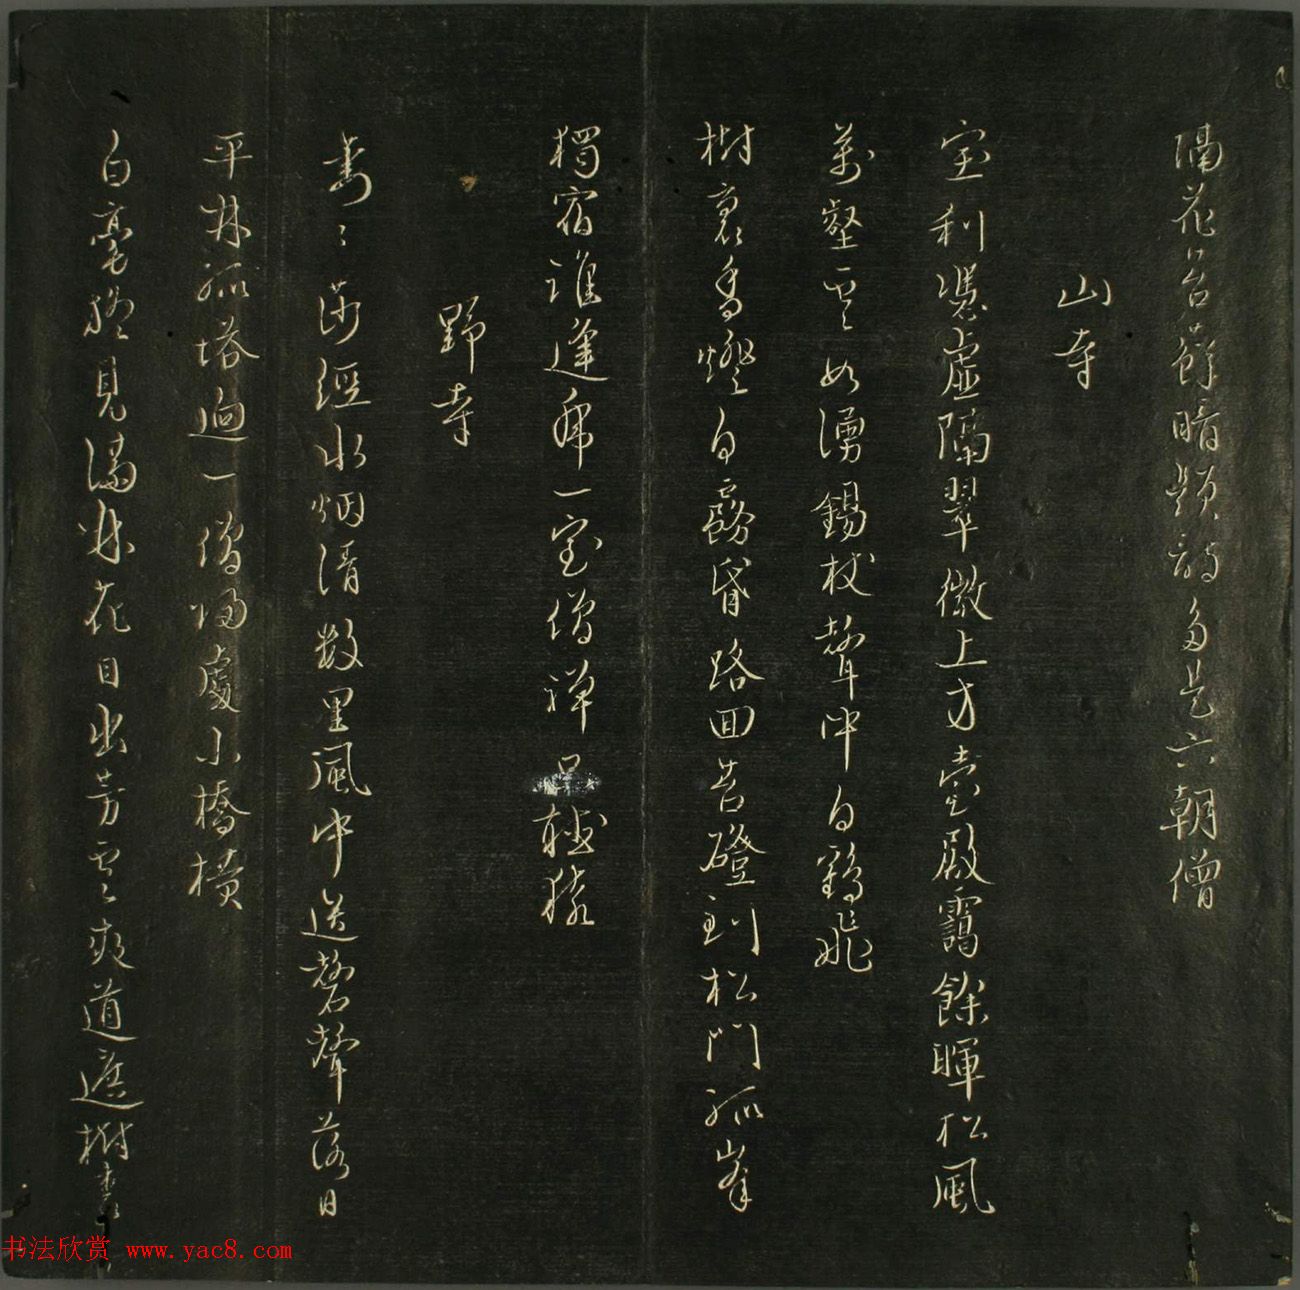 隔花苔蘚暗頻詩多是六朝僧
山寺
宝刹憑虛隔翠微上方臺殿靄餘暉松風
萬壑雲如湧錫杖聲中白鶴飛
樹裏香燈白露昏路回苔磴到松門孤峯
獨宿誰逢席一室僧禪只聽猿
野寺
萋〻莎逕水烟清数里風中送磬聲落日
平林孤塔迥一僧归處小橋橫
白毫瞻見滿林花目出芳雲夾道遮樹裏
书法欣赏 www.yac8.com